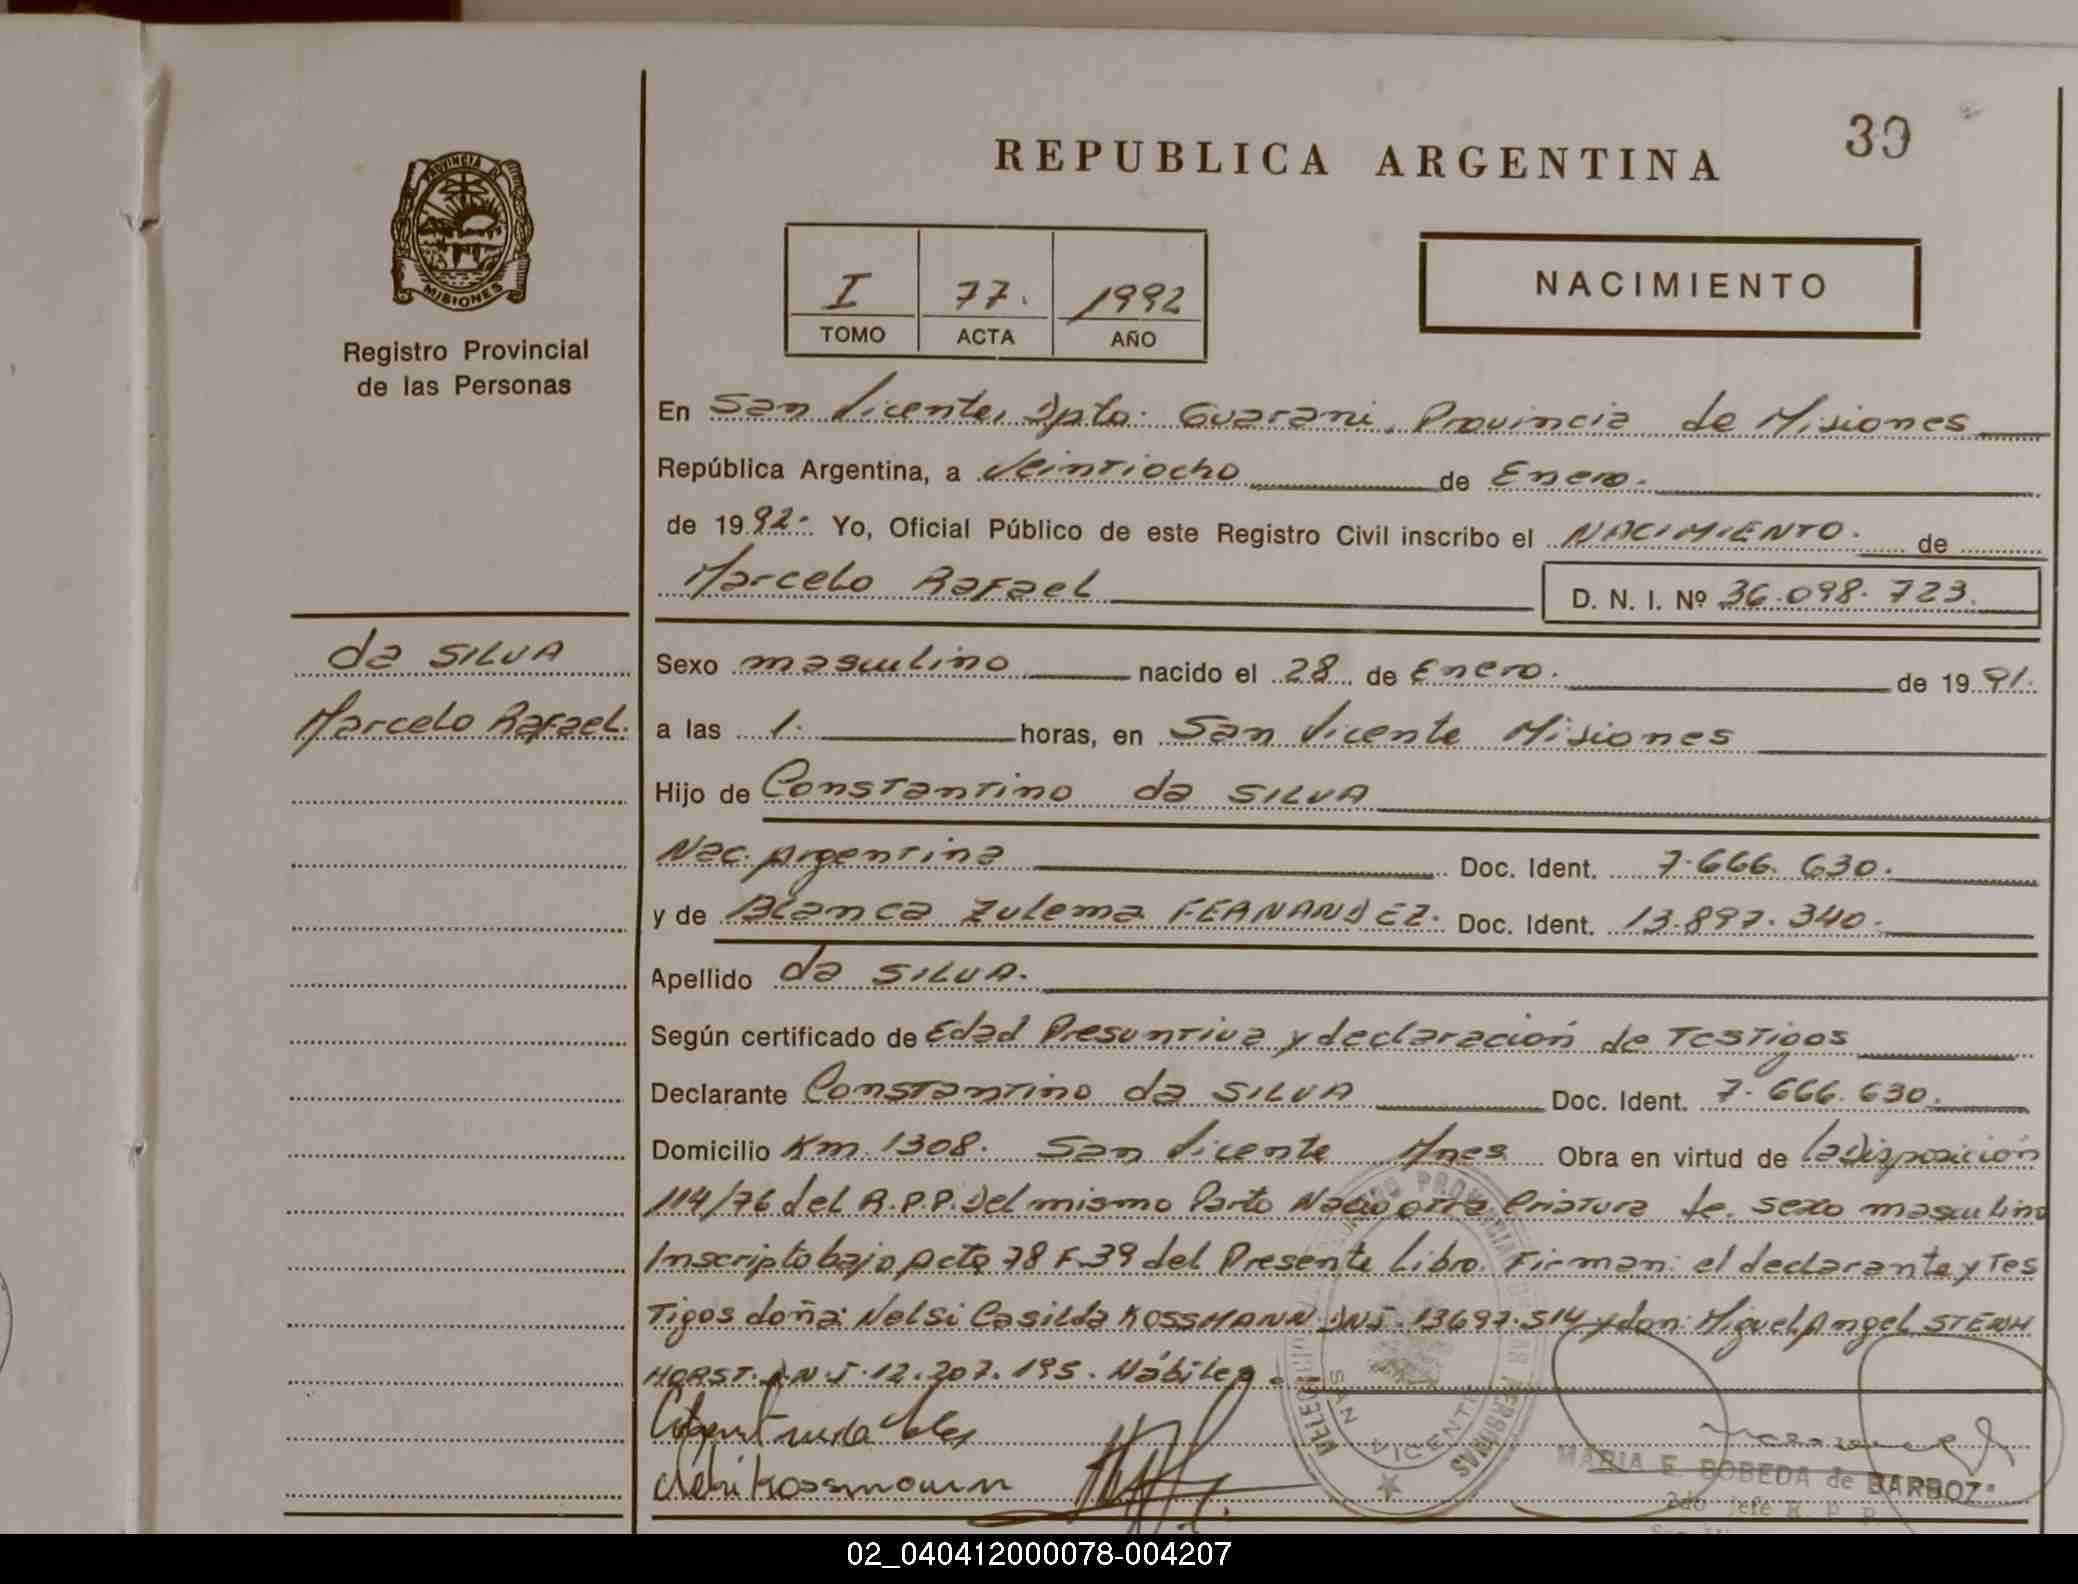 39
REPUBLICA ARGENTINA
PROVINCIA DE
MISIONES
Registro Provincial
de las Personas
I 77. 1992
TOMO ACTA AÑO
NACIMIENTO
En San Vicente, Dpto. Guarani, Provincia de Misiones
República Argentina, a Veintiocho de Enero.
de 1992. Yo, Oficial Público de este Registro Civil inscribo el NACIMIENTO. de
Marcelo Rafael D. N. I. Nº 36.098.723.
da SILVA
Marcelo Rafael.
Sexo masculino nacido el 28 de Enero. de 1991.
a las 1. horas, en San Vicente Misiones
Hijo de Constantino da SILVA
Nac. Argentina Doc. Ident. 7.666.630.
y de Blanca Zulema FERNANDEZ. Doc. Ident. 13.897.340.
Apellido da SILVA.
Según certificado de Edad Presuntiva y declaración de Testigos
Declarante Constantino da SILVA Doc. Ident. 7.666.630.
Domicilio Km. 1308. San Vicente Mnes Obra en virtud de la Disposición
114/76 del R.P.P. Del mismo Parto Nacio otra Criatura de sexo masculino
Inscripto bajo Acta 78 F.39 del Presente Libro. Firman: el declarante y Tes
Tigos doña: Nelsi Casilda KOSSMANN DNI. 13697.514 y don: Miguel Angel STENH
HORST. D.N.I. 12.207.195. Hábiles.
SAN VICENTE
MARIA E. BOBEDA de BARBOZ
2do Jefe R. P. P.
02_040412000078-004207